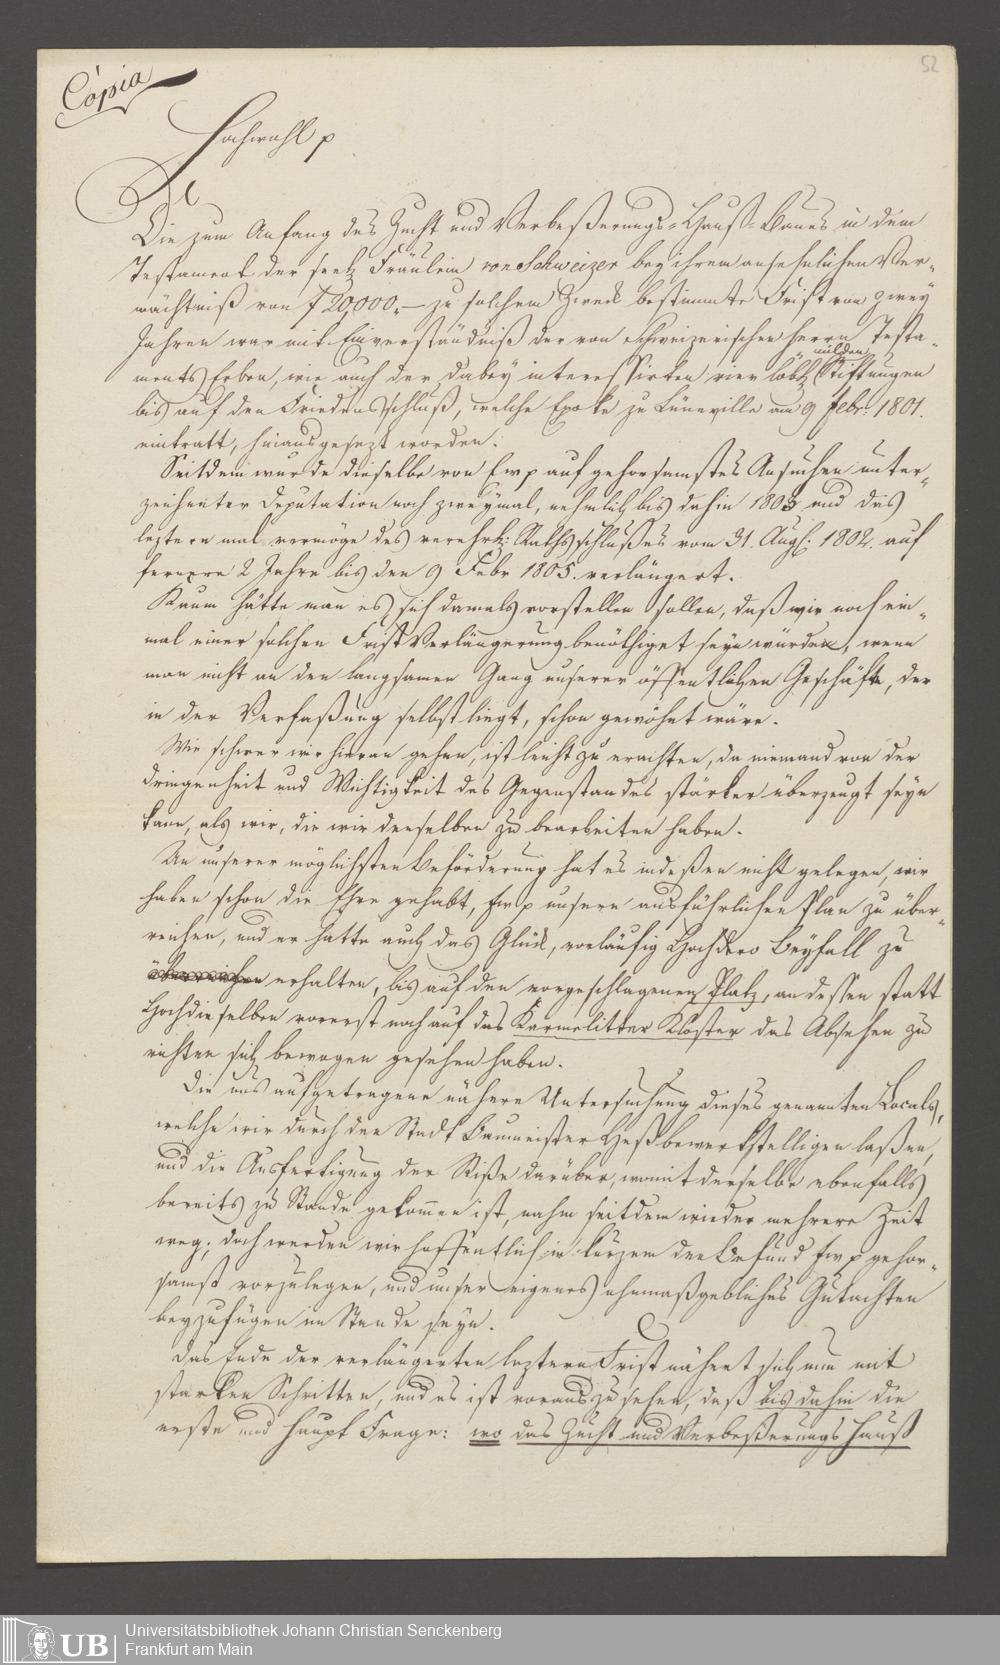 52
Copia
Hochwohl p
Die zum Anfang des Zucht und Verbeßerungs-Hauß-Baues in dem
Testament der seel Fräulein von Schweizer bey ihrem ansehnlichen Ver-
mächtniß von f 20,000.- zu solchem Zweck bestimmte Frist von zwey
Jahren war mit Einverständniß der von Schweizerischen Herrn Testa-
milden
ments Erben, wie auch der dabey interessirten vier löbl Stiftungen
bis auf den Friedensschluß, welche Epoke zu Lüneville am 9 Febr. 1801.
eintratt, hinausgesezt worden.
Seitdem wurde dieselbe von Ew p auf gehorsamstes Ansuchen unter-
zeichneter Deputation noch zweymal, nehmlich bis dahin 1803 und das
leztere mal vermöge des verehrl: Rathsschlußes vom 31. Aug. 1802. auf
fernere 2 Jahre bis den 9 Febr 1805. verlängert.
Kaum hätte man es sich damals vorstellen sollen, daß wir noch ein-
mal einer solchen Frist Verlängerung benöthiget seyn würden, wenn
man nicht an den langsamen Gang unserer öffentlichen Geschäfte, der
in der Verfaßung selbst liegt, schon gewöhnt wäre.
Wie schwer wir hieran gehen, ist leicht zu erachten, da niemand von der
dringenheit und Wichtigkeit des Gegenstandes stärker überzeugt seyn
kann, als wir, die wir denselben zu bearbeiten haben.
An unserer möglichsten Beförderung hat es indeßen nicht gelegen, wir
haben schon die Ehre gehabt, Ew p unsern ausführlichen Plan zu über-
reichen, und er hatte auch das Glück, vorläufig Hochdero Beyfall zu
überreichen erhalten, bis auf den vorgeschlagenen Platz, an dessen statt
Hochdieselben vorerst noch auf das Karmelitter Kloster das Absehen zu
richten sich bewogen gesehen haben.
Die uns aufgetragene nähere Untersuchung dieses genannten Locals,
welche wir durch den Stadt Baumeister Heß bewerkstelligen laßen,
und die Ausfertigung der Riße darüber, womit derselbe ebenfalls
bereits zu Stande gekommen ist, nahm seitdem wieder mehrere Zeit
weg; doch werden wir hoffentlich in kurzem den Befund Ew p gehor-
samst vorzulegen, und unser eigenes ohnmaßgebliches Gutachten
beyzufügen im Stande seyn.
Das Ende der verlängerten leztern Frist nähert sich nun mit
starken Schritten, und es ist vorauszusehen, daß bis dahin die
erste und Haupt Frage: wo das Zucht und Verbeßerungs Hauß
Universitätsbibliothek Johann Christian Senckenberg
Frankfurt am Main
UB